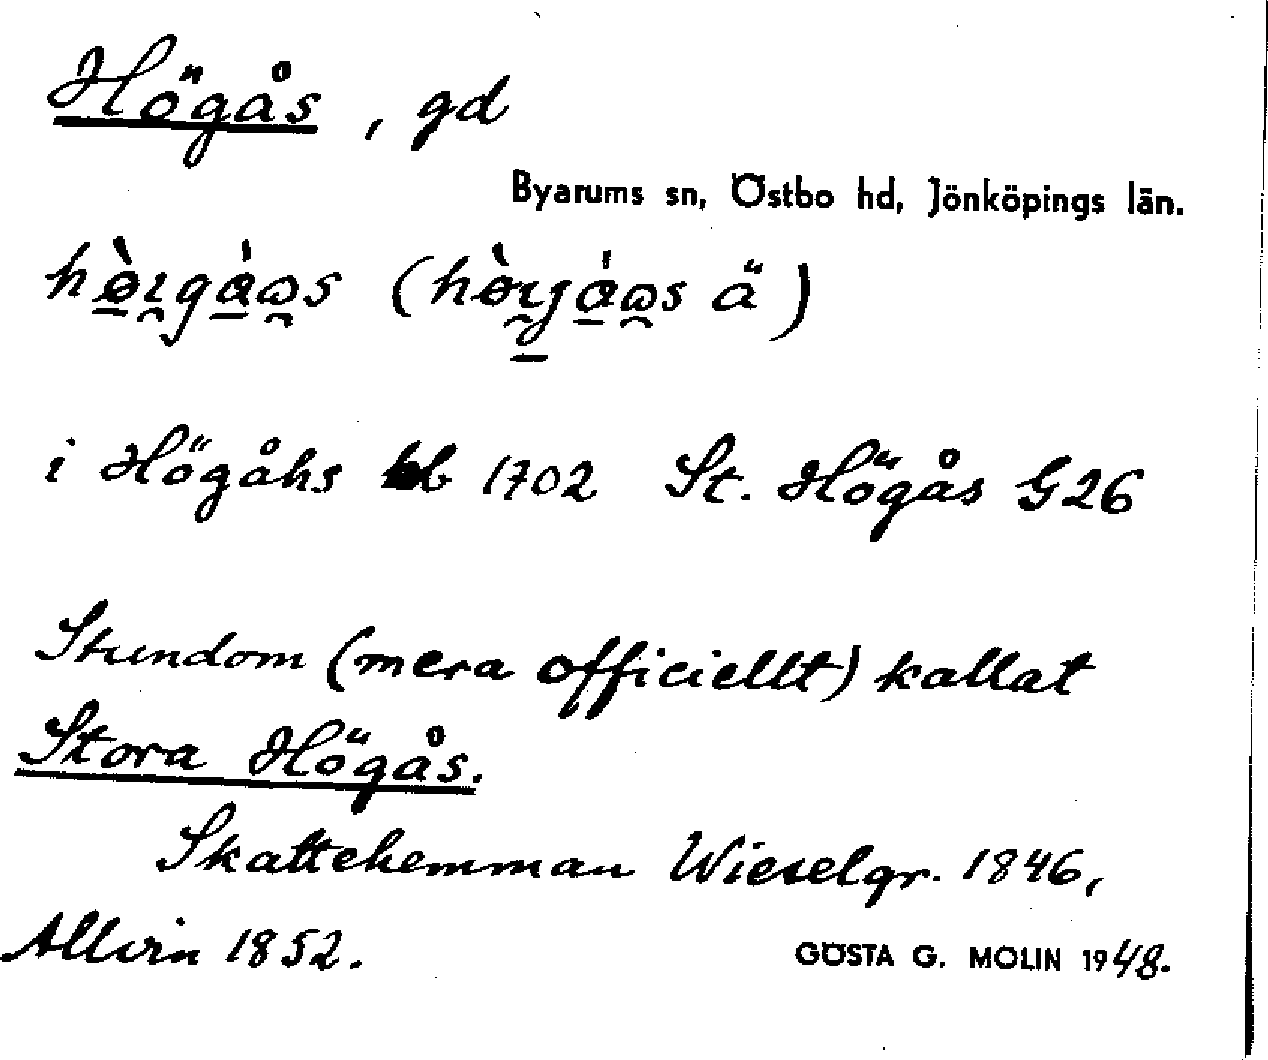 Högås, gd
Byarums sn, Östbo hd, Jönköpings län.
i Högåhs kb 1702 St. Högås G26
Stundom (mera officiellt) kallat
Stora Högås.
Skattehemman Wieselgr. 1846,
Allvin 1852.
GÖSTA G. MOLIN 1948.